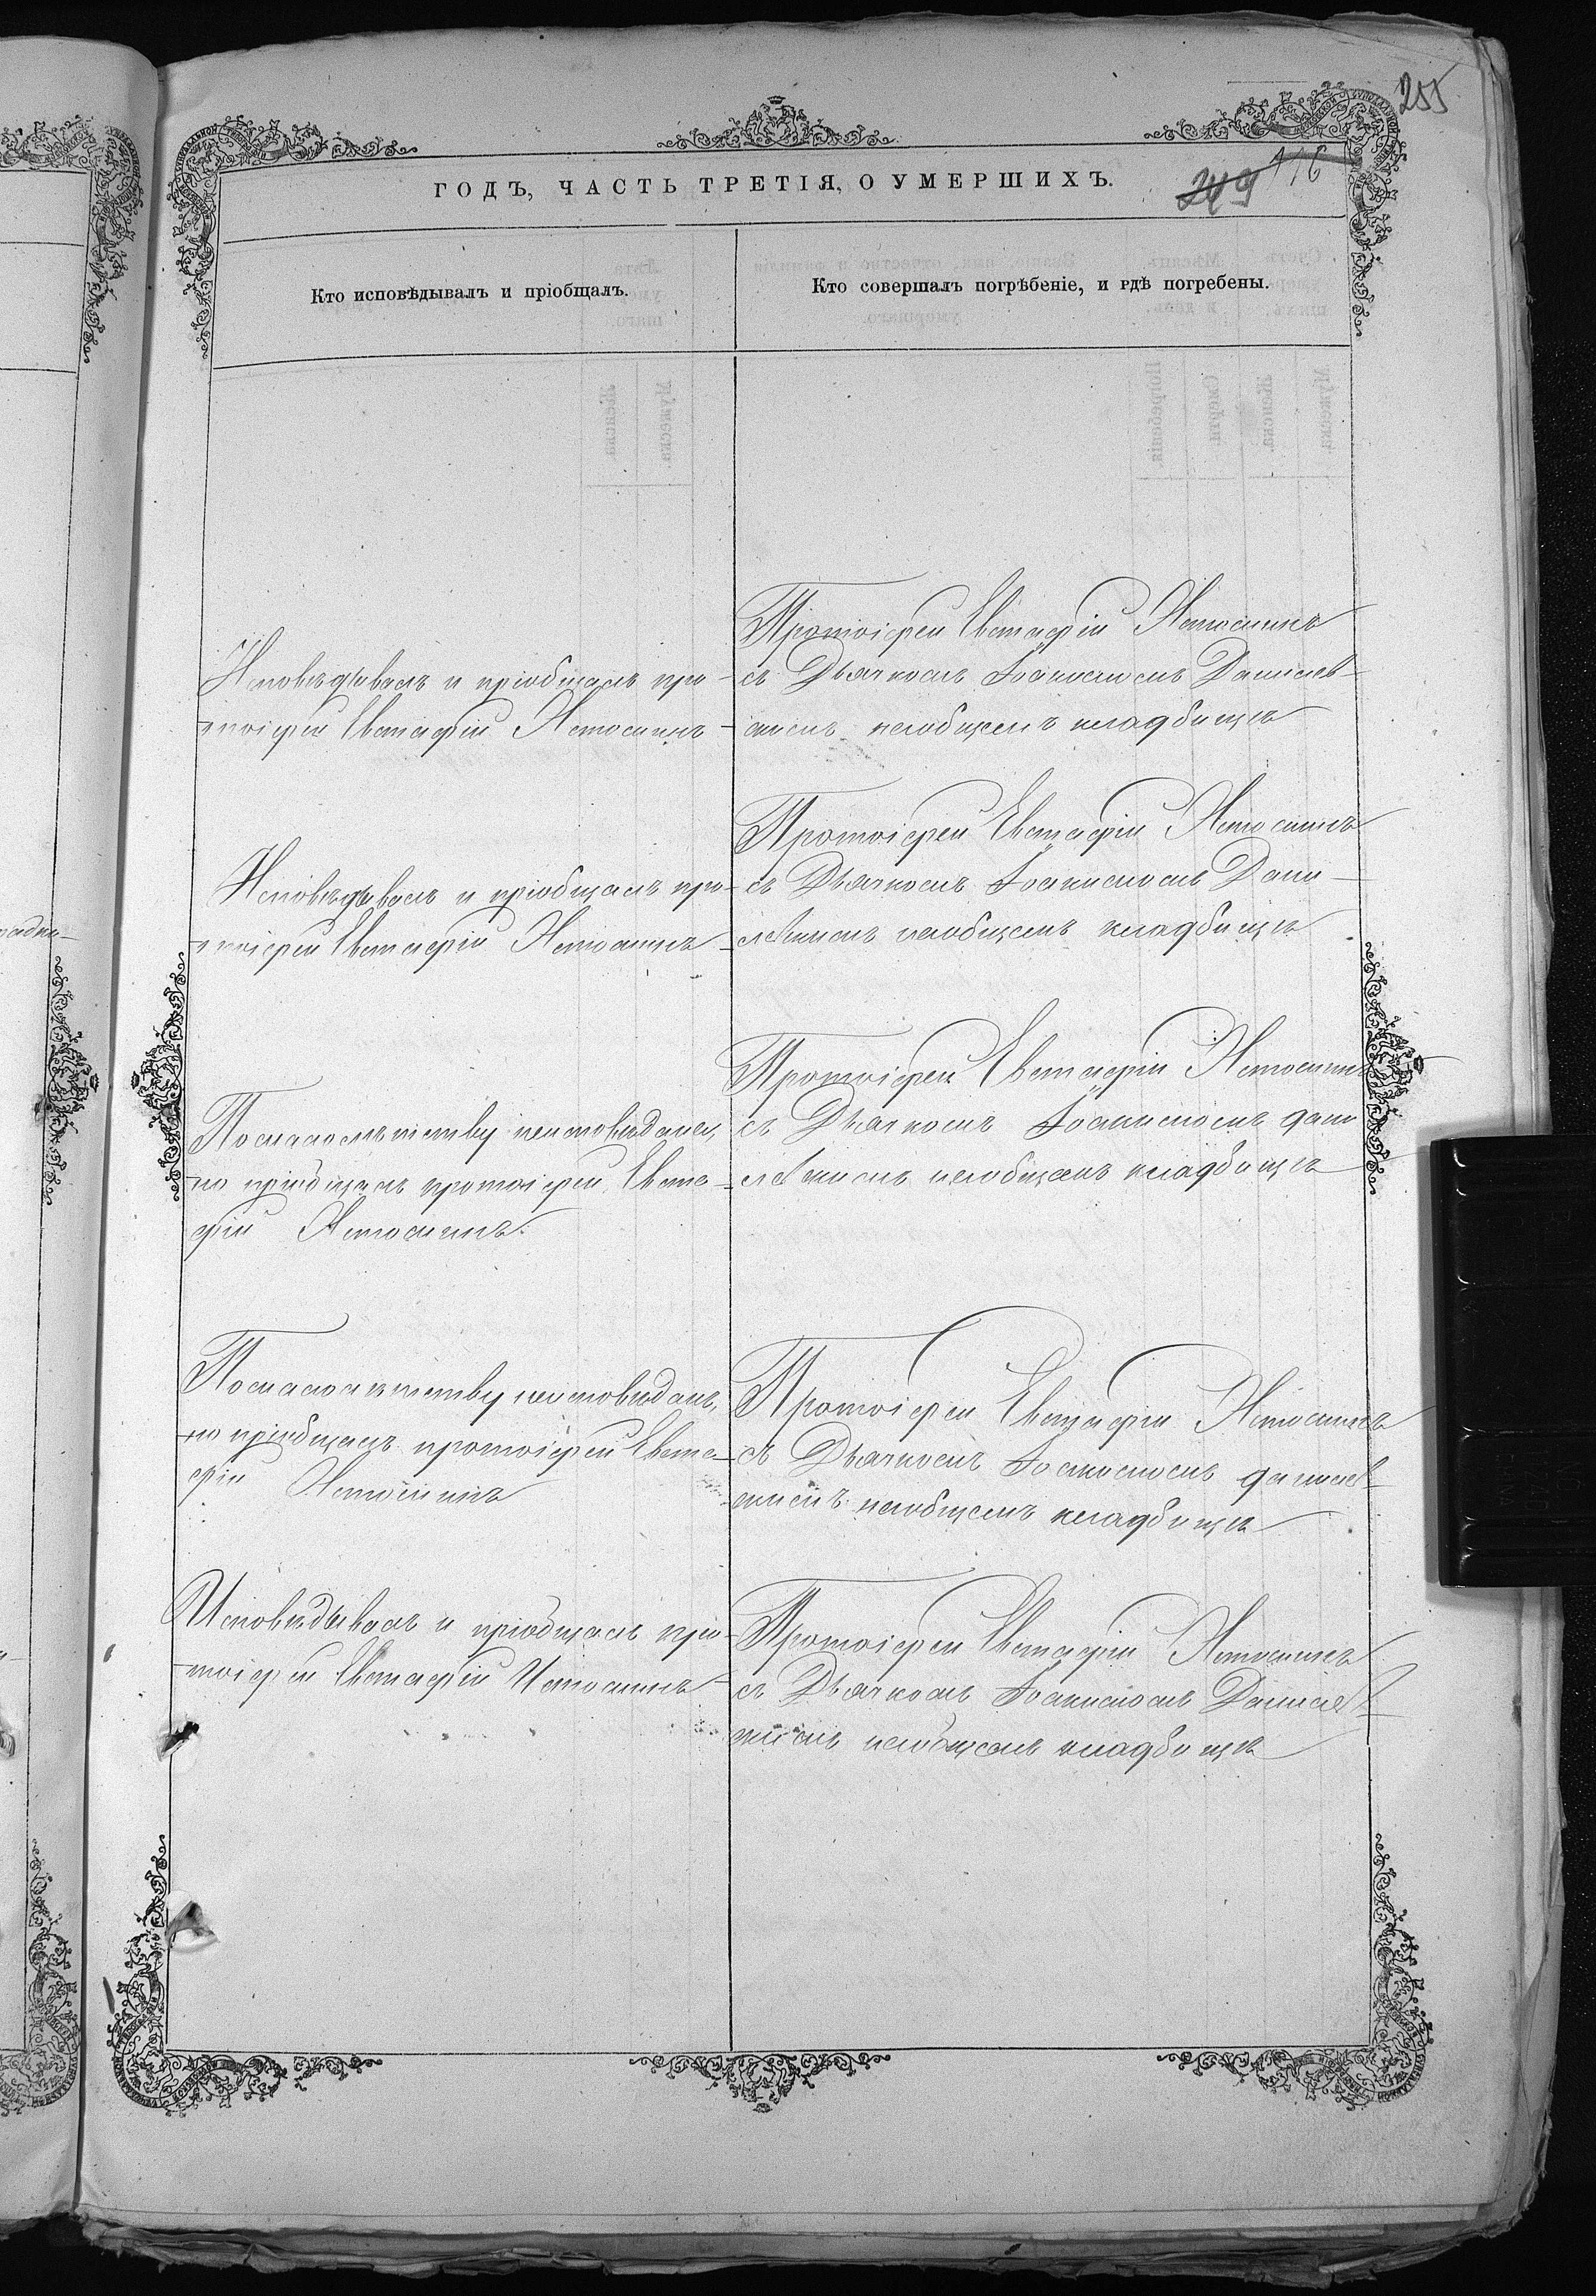 255
ГОДЪ, ЧАСТЬ ТРЕТІЯ, О УМЕРШИХЪ.
249 116
Кто исповѣдывалъ и пріобщалъ.
Кто совершалъ погрѣбеніе, и гдѣ погребены.
Исповѣдывалъ и пріобщалъ про-
тоіерей Евстафій Истоминъ
Протоіерей Евстафій Истоминъ
съ Дьячкомъ Іоакимомъ Данилев-
скимъ наобщемъ кладбищѣ
Исповѣдывалъ и пріобщалъ про-
тоіерей Евстафій Истоминъ
Протоіерей Евстафій Истоминъ
съ Дьячкомъ Іоакимомъ Дани-
левскимъ наобщемъ кладбищѣ
Помалолѣтству неисповѣданъ,
но пріобщалъ протоіерей Евста-
фій Истоминъ.
Протоіерей Евстафій Истоминъ
съ Дьячкомъ Іоакимомъ Дани
левскимъ наобщемъ кладбищѣ
Помалолѣтству неисповѣданъ,
но пріобщалъ протоіерей Евста-
фій Истоминъ
Протоіерей Евстафій Истоминъ
съ Дьячкомъ Іоакимомъ Данилев-
скимъ наобщемъ кладбищѣ
Исповѣдывалъ и пріобщалъ про-
тоіерей Евстафій Истоминъ
Протоіерей Евстафій Истоминъ
съ Дьячкомъ Іоакимомъ Данилев-
скимъ наобщемъ кладбищѣ